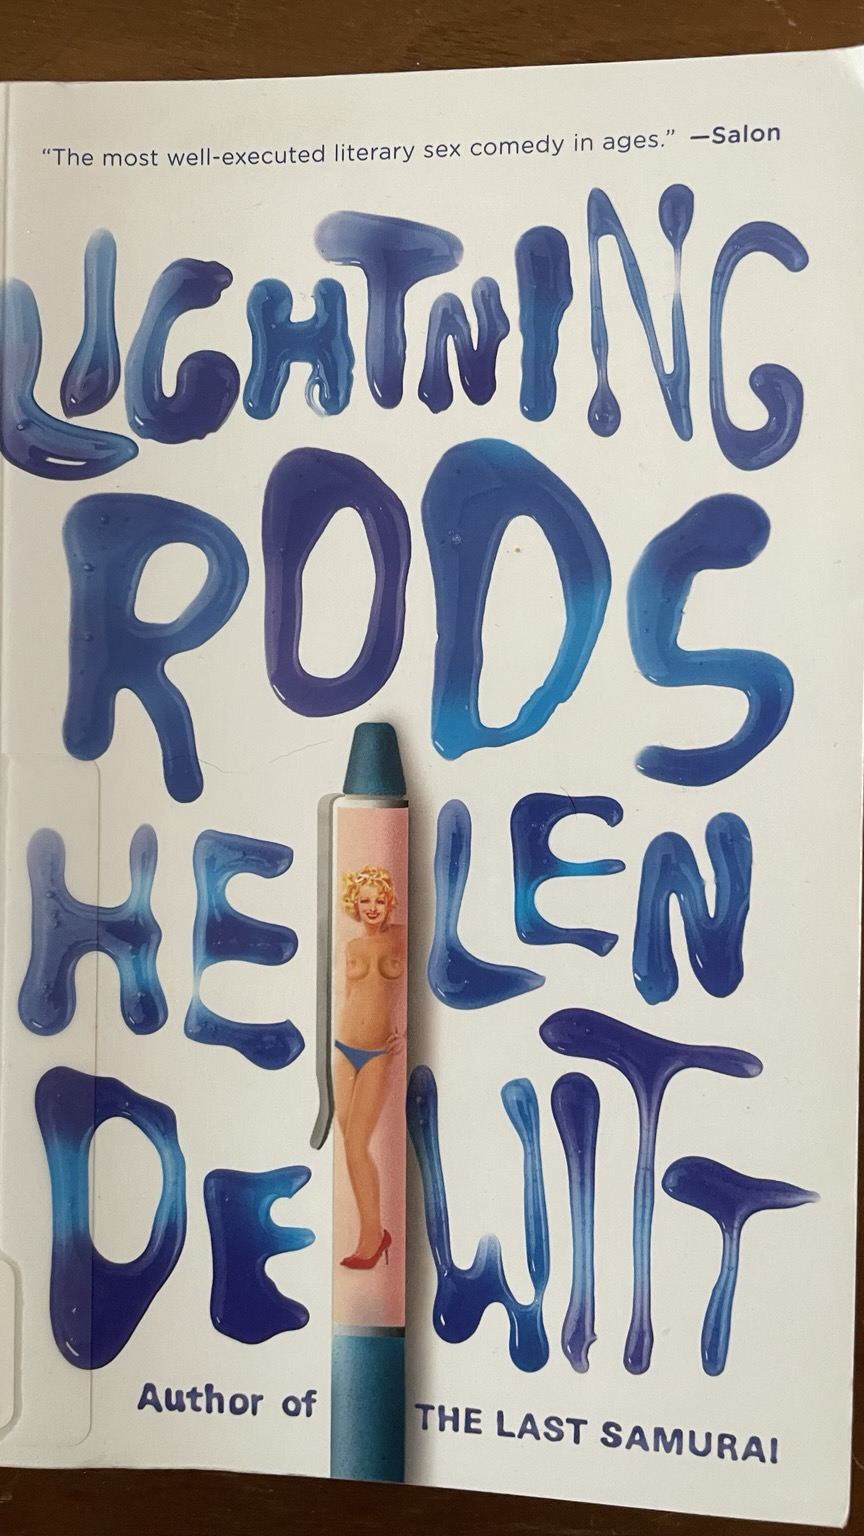 “The most well-executed literary sex comedy in ages.” —Salon
LIGHTNING
RODS
HELEN
DEWITT
Author of THE LAST SAMURAI